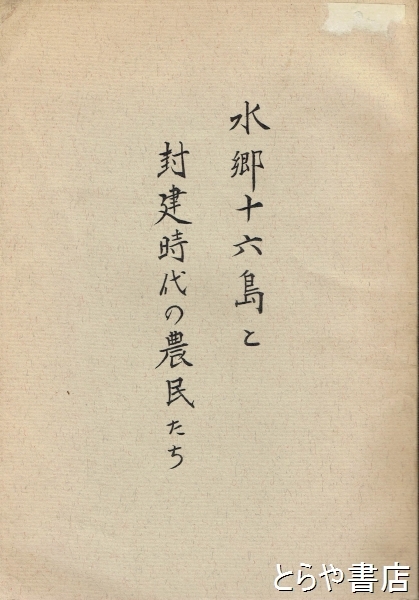 水郷十六島と
封建時代の農民たち
とらや書店